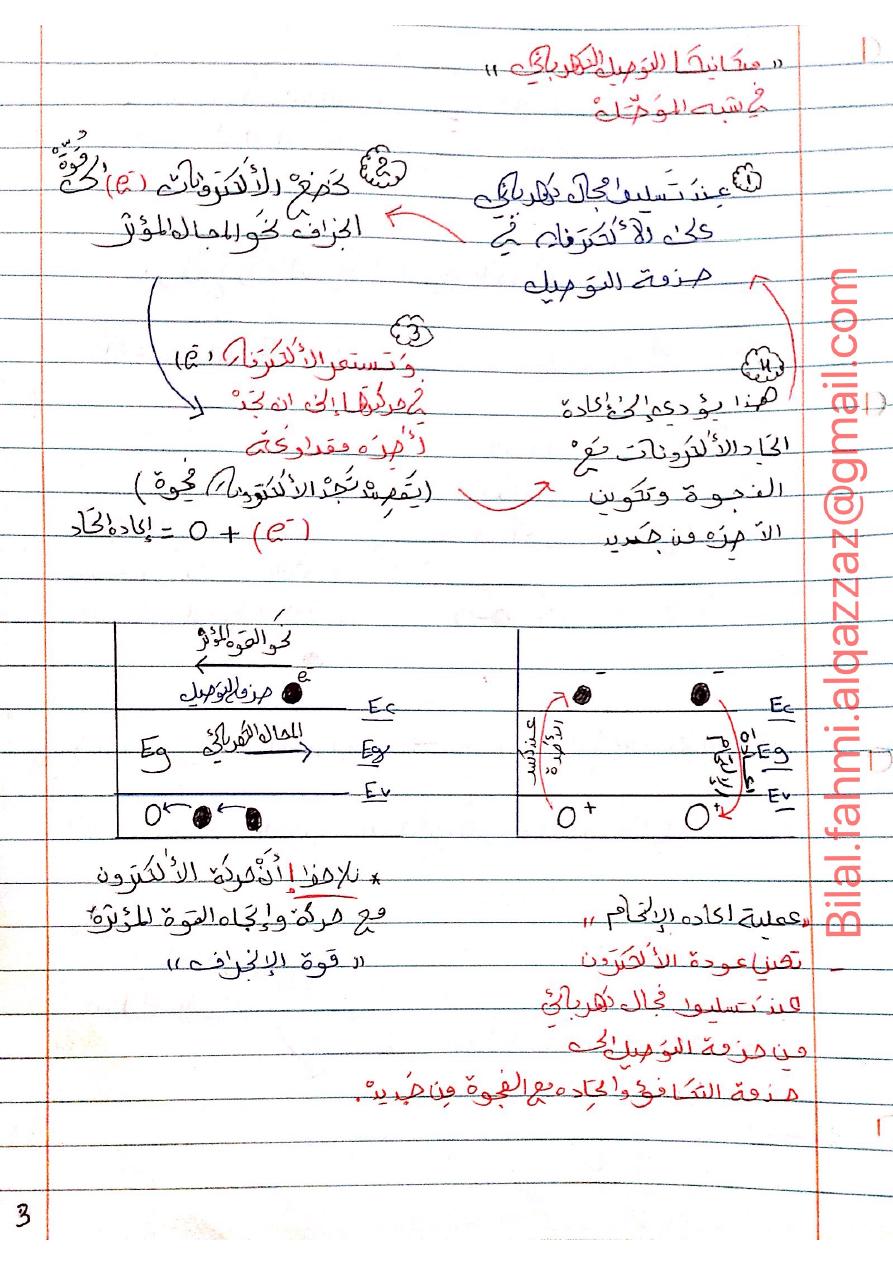 " ميكانيكا التوصيل الكهربائي "
في شبه الموصلات
1 عند تسليط مجال كهربائي
على الألكترونات في
حزمة التوصيل
2 تخضع الألكترونات (e⁻) إلى قوة
انجراف نحو المجال المؤثر
3
وتستمر الألكترونات (e⁻)
في حركتها إلى ان تجد
أصره مفقودة
(يقصد تجد الألكترونات فجوة)
(e⁻) + O = إعاده اتحاد
4
هذا يؤدي إلى إعادة
اتحاد الألكترونات مع
الفجوة وتكوين
الآصره من جديد
نحو القوة المؤثر
e⁻
حزمة التوصيل
Ec
Eg المجال الكهربائي Eg
Ev
Ec
عند كسر الأصرة
إعادة الإلتحام
Eg
Ev
+ +
* نلاحظ ! أنْ حركة الألكترون
مع حركة وإتجاه القوة المؤثرة
" قوة الإنجراف "
" عملية اعاده الإلتحام "
- تعني عودة الألكترون
عند تسليط مجال كهربائي
من حزمة التوصيل إلى
حزمة التكافؤ واتحاده مع الفجوة من جديد.
3
Bilal.fahmi.alqazzaz@gmail.com